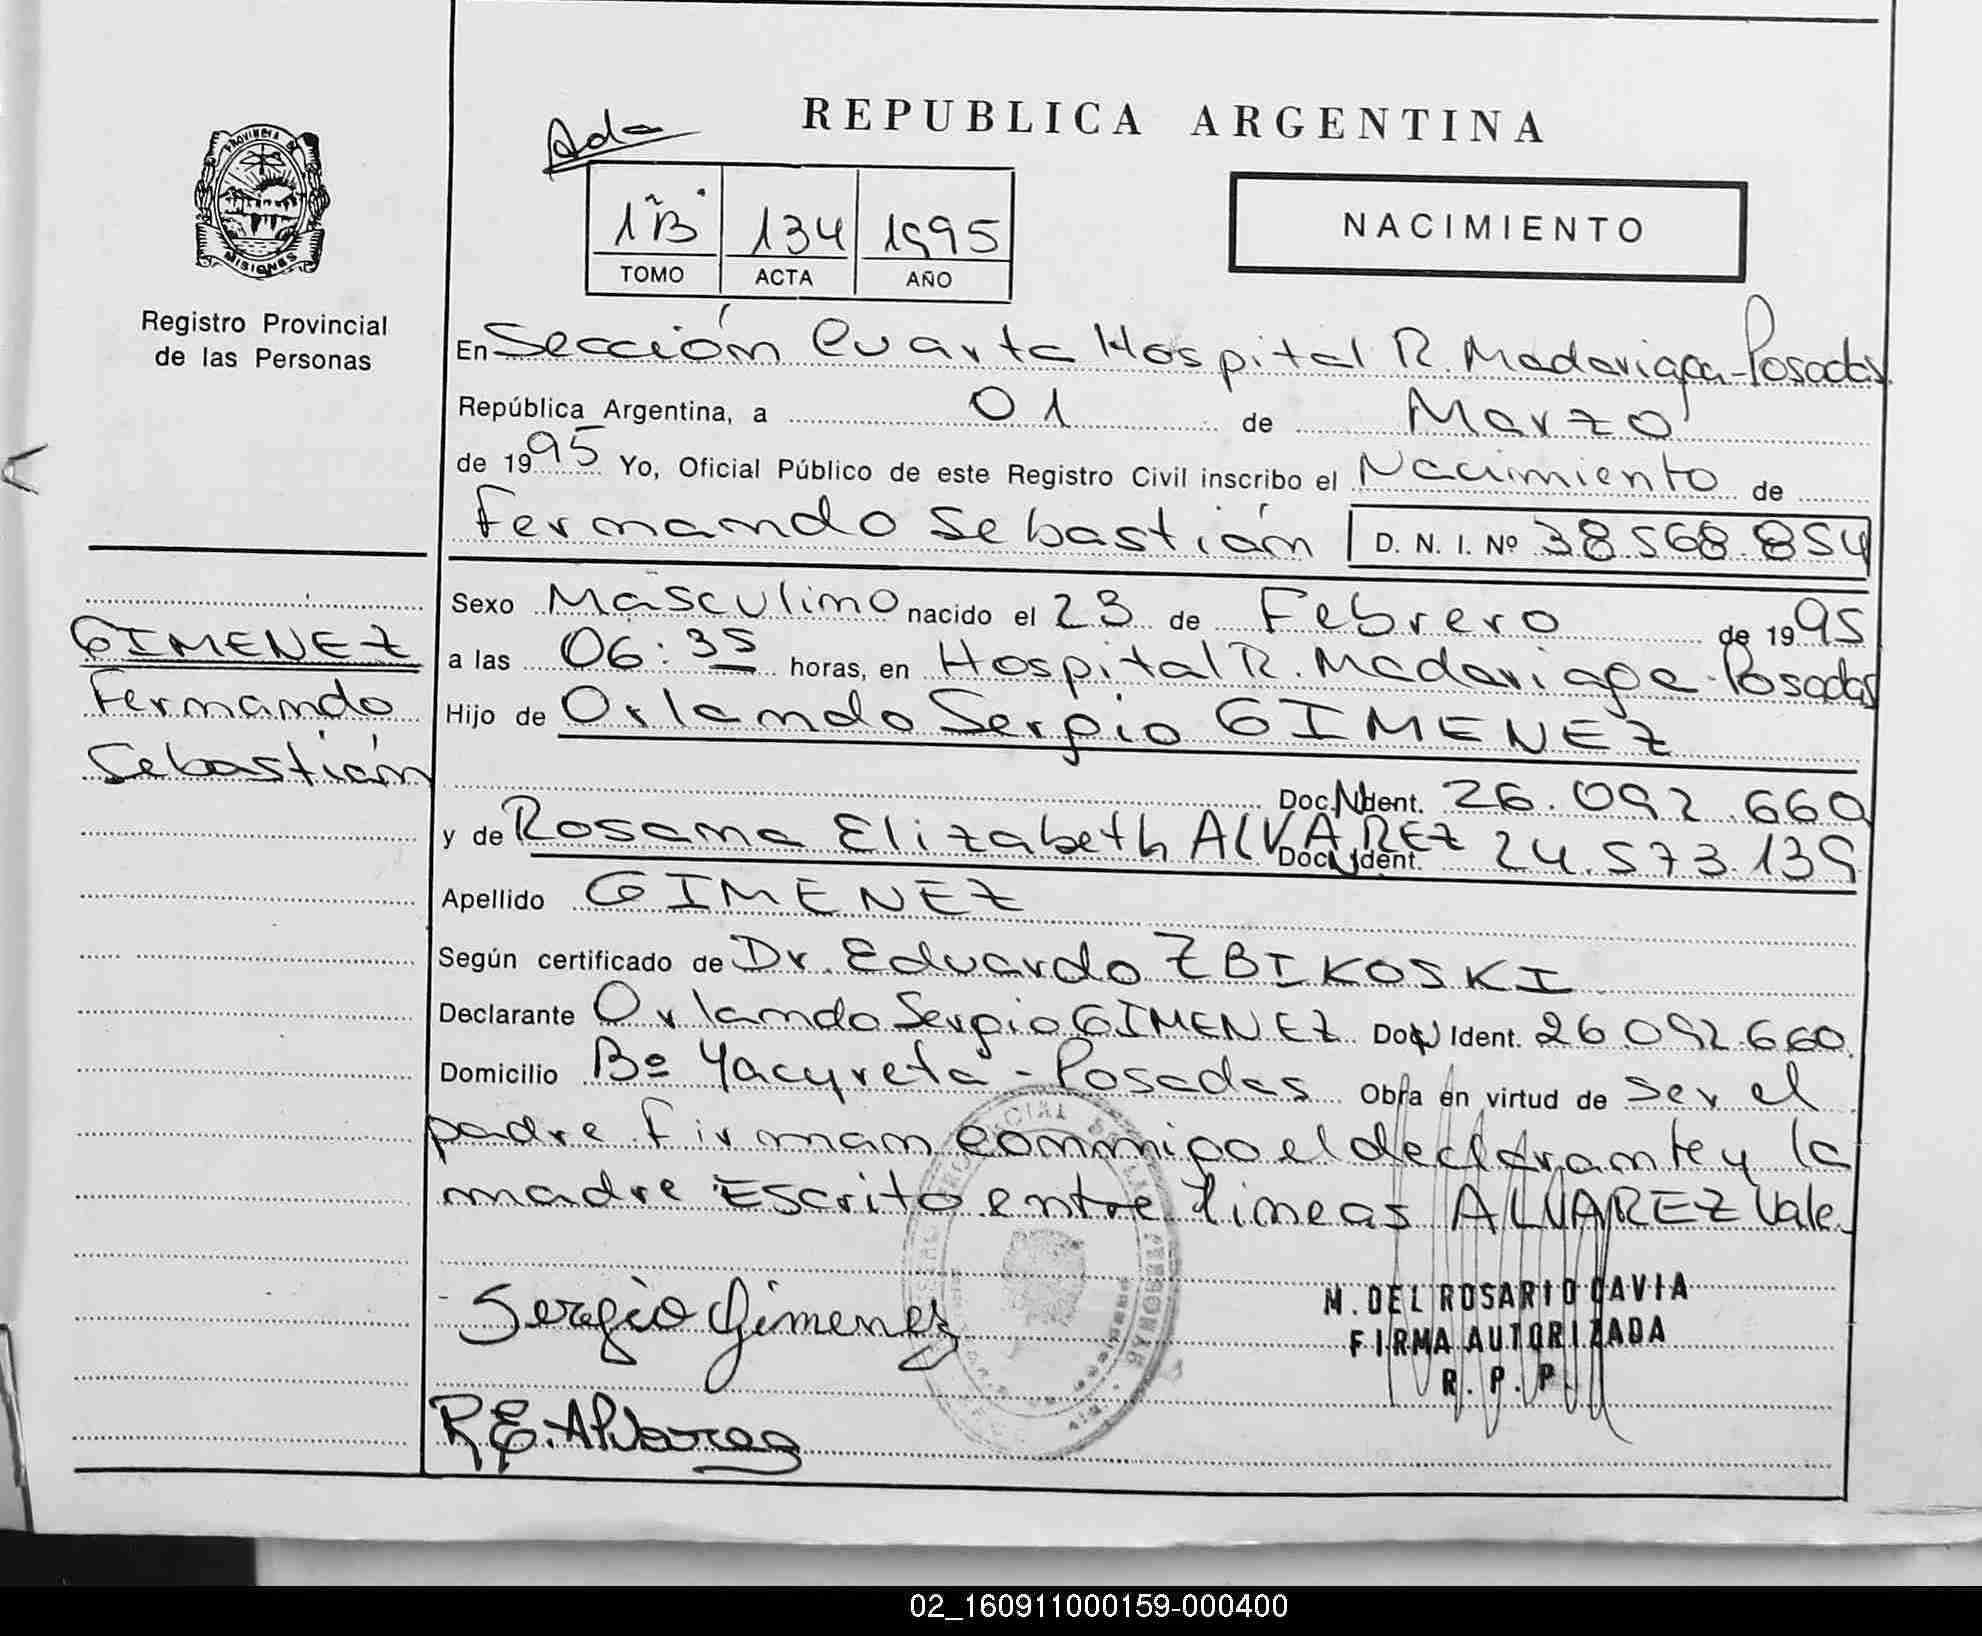 REPUBLICA ARGENTINA
Ada
1 "B" 134 1995
TOMO ACTA AÑO
NACIMIENTO
PROVINCIA DE
MISIONES
Registro Provincial
de las Personas
En Sección Cuarta Hospital R. Madariaga-Posadas
República Argentina, a 01 de Marzo
de 1995 Yo, Oficial Público de este Registro Civil inscribo el Nacimiento de
Fernando Sebastián D. N. I. Nº 38.568.854
Sexo Masculino nacido el 23 de Febrero de 1995
a las 06:35 horas, en Hospital R. Madariaga-Posadas
Hijo de Orlando Sergio GIMENEZ
Doc. Ident. 26.092.660
y de Rosana Elizabeth ALVAREZ Doc. Ident. 24.573.139
Apellido GIMENEZ
Según certificado de Dr. Eduardo ZBIKOSKI
Declarante Orlando Sergio GIMENEZ Doc. Ident. 26.092.660.
Domicilio Bº Yacyreta - Posadas Obra en virtud de ser el
padre firman conmigo el declarante y la
madre Escrito entre lineas ALVAREZ Vale
GIMENEZ
Fernando
Sebastián
Sergio Gimenez
M. DEL ROSARIO CAVIA
FIRMA AUTORIZADA
R. P. P.
R E. Alvarez
02_160911000159-000400